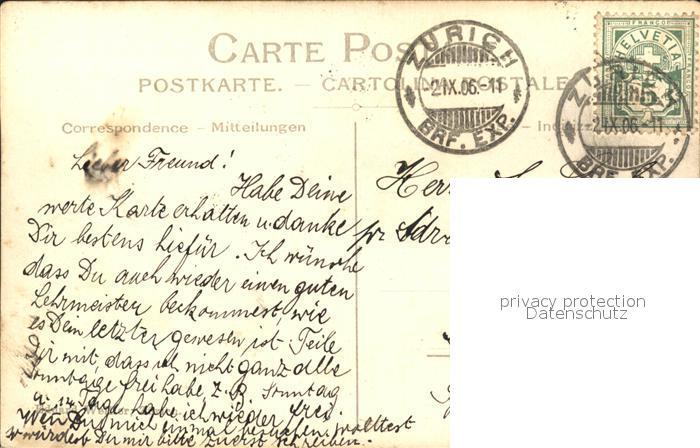 CARTE POS
POSTKARTE. – CARTOLINA POSTALE
Correspondence – Mitteilungen
ZÜRICH
21.IX.06.-11
BRF. EXP.
FRANCO
HELVETIA
5
ZÜRICH
21.IX.06.-11
BRF. EXP.
Lieber Freund!
Habe Deine
werte Karte erhalten u. danke
Dir bestens hiefür. Ich wünsche
dass Du auch wieder einen guten
Lehrmeister bekommest, wie
es Dein letzter gewesen ist. Teile
Dir mit, dass ich nicht ganz alle
Sonntage frei habe, z. B. Sonntag
14 Tage habe ich wieder frei.
Wen Du mich einmal besuchen wolltest
so würdest Du mir bitte zuerst schreiben.
Herr
pr. Adr
privacy protection
Datenschutz